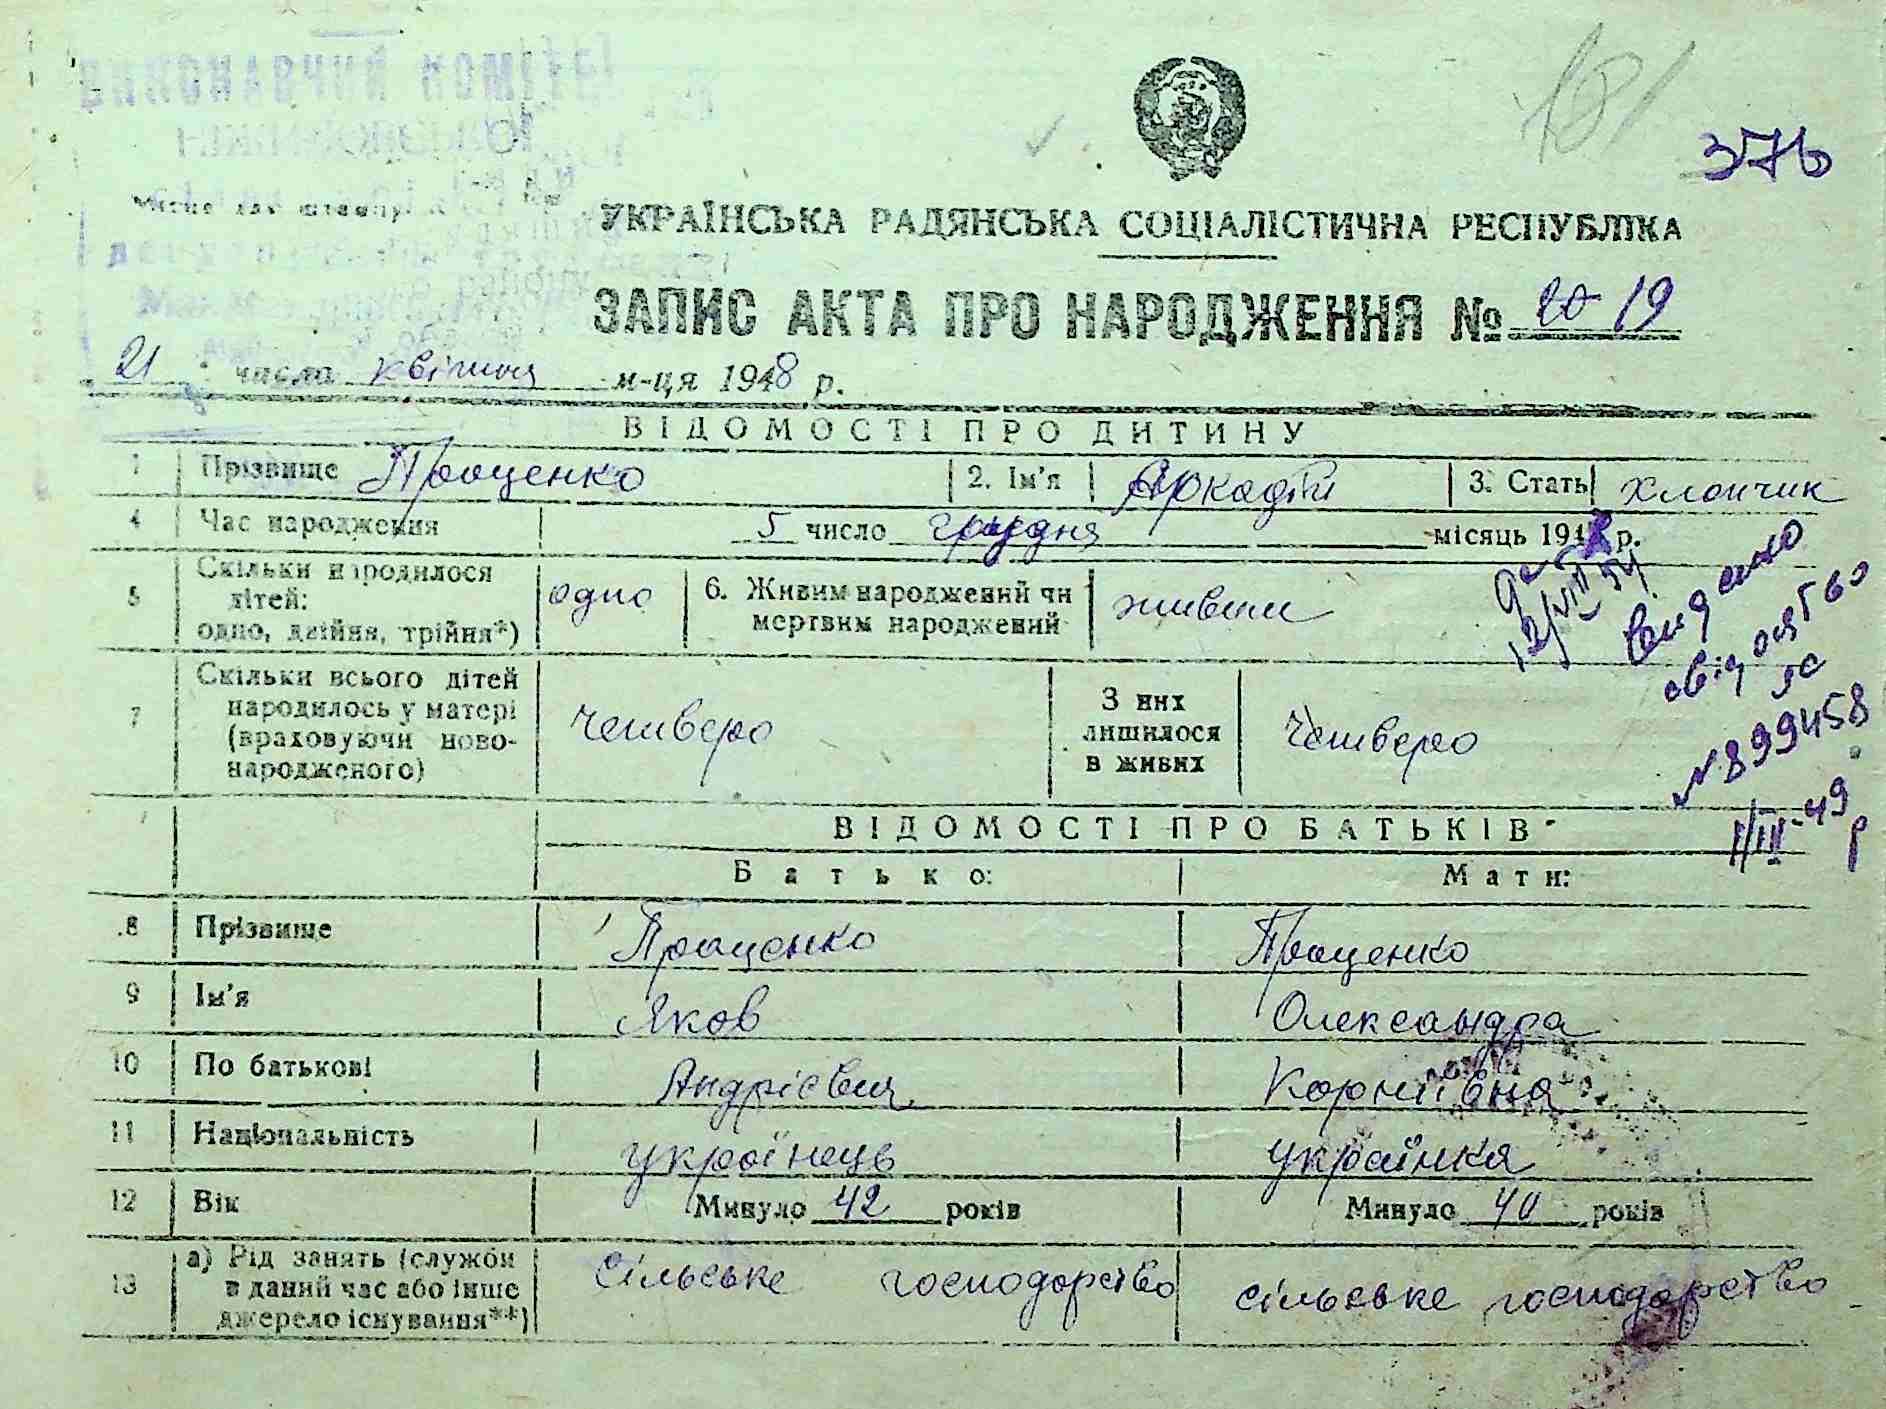 ВИКОНАВЧИЙ КОМІТЕТ
181
376
Місце для штампу
УКРАЇНСЬКА РАДЯНСЬКА СОЦІАЛІСТИЧНА РЕСПУБЛІКА
ЗАПИС АКТА ПРО НАРОДЖЕННЯ № 20 19
21 числа квітня м-ця 1948 р.
ВІДОМОСТІ ПРО ДИТИНУ
1 Прізвище Проценко 2. Ім'я Аркадій 3. Стать хлопчик
4 Час народження 5 число грудня місяць 194 р.
5 Скільки народилося дітей: одно, двійня, трійня*) одно 6. Живим народжений чи мертвим народжений живим
12/VIII 54
видано
свідоцтво
№ 899458
1/III-49 р
7 Скільки всього дітей народилось у матері (враховуючи новонародженого) четверо З них лишилося в живих четверо
ВІДОМОСТІ ПРО БАТЬКІВ
Батько: Мати:
8 Прізвище Проценко Проценко
9 Ім'я Яков Олександра
10 По батькові Андрієвич Корніївна
11 Національність українець українка
12 Вік Минуло 42 років Минуло 40 років
13 а) Рід занять (служби в даний час або інше джерело існування**) Сільське господарство сільське господарство